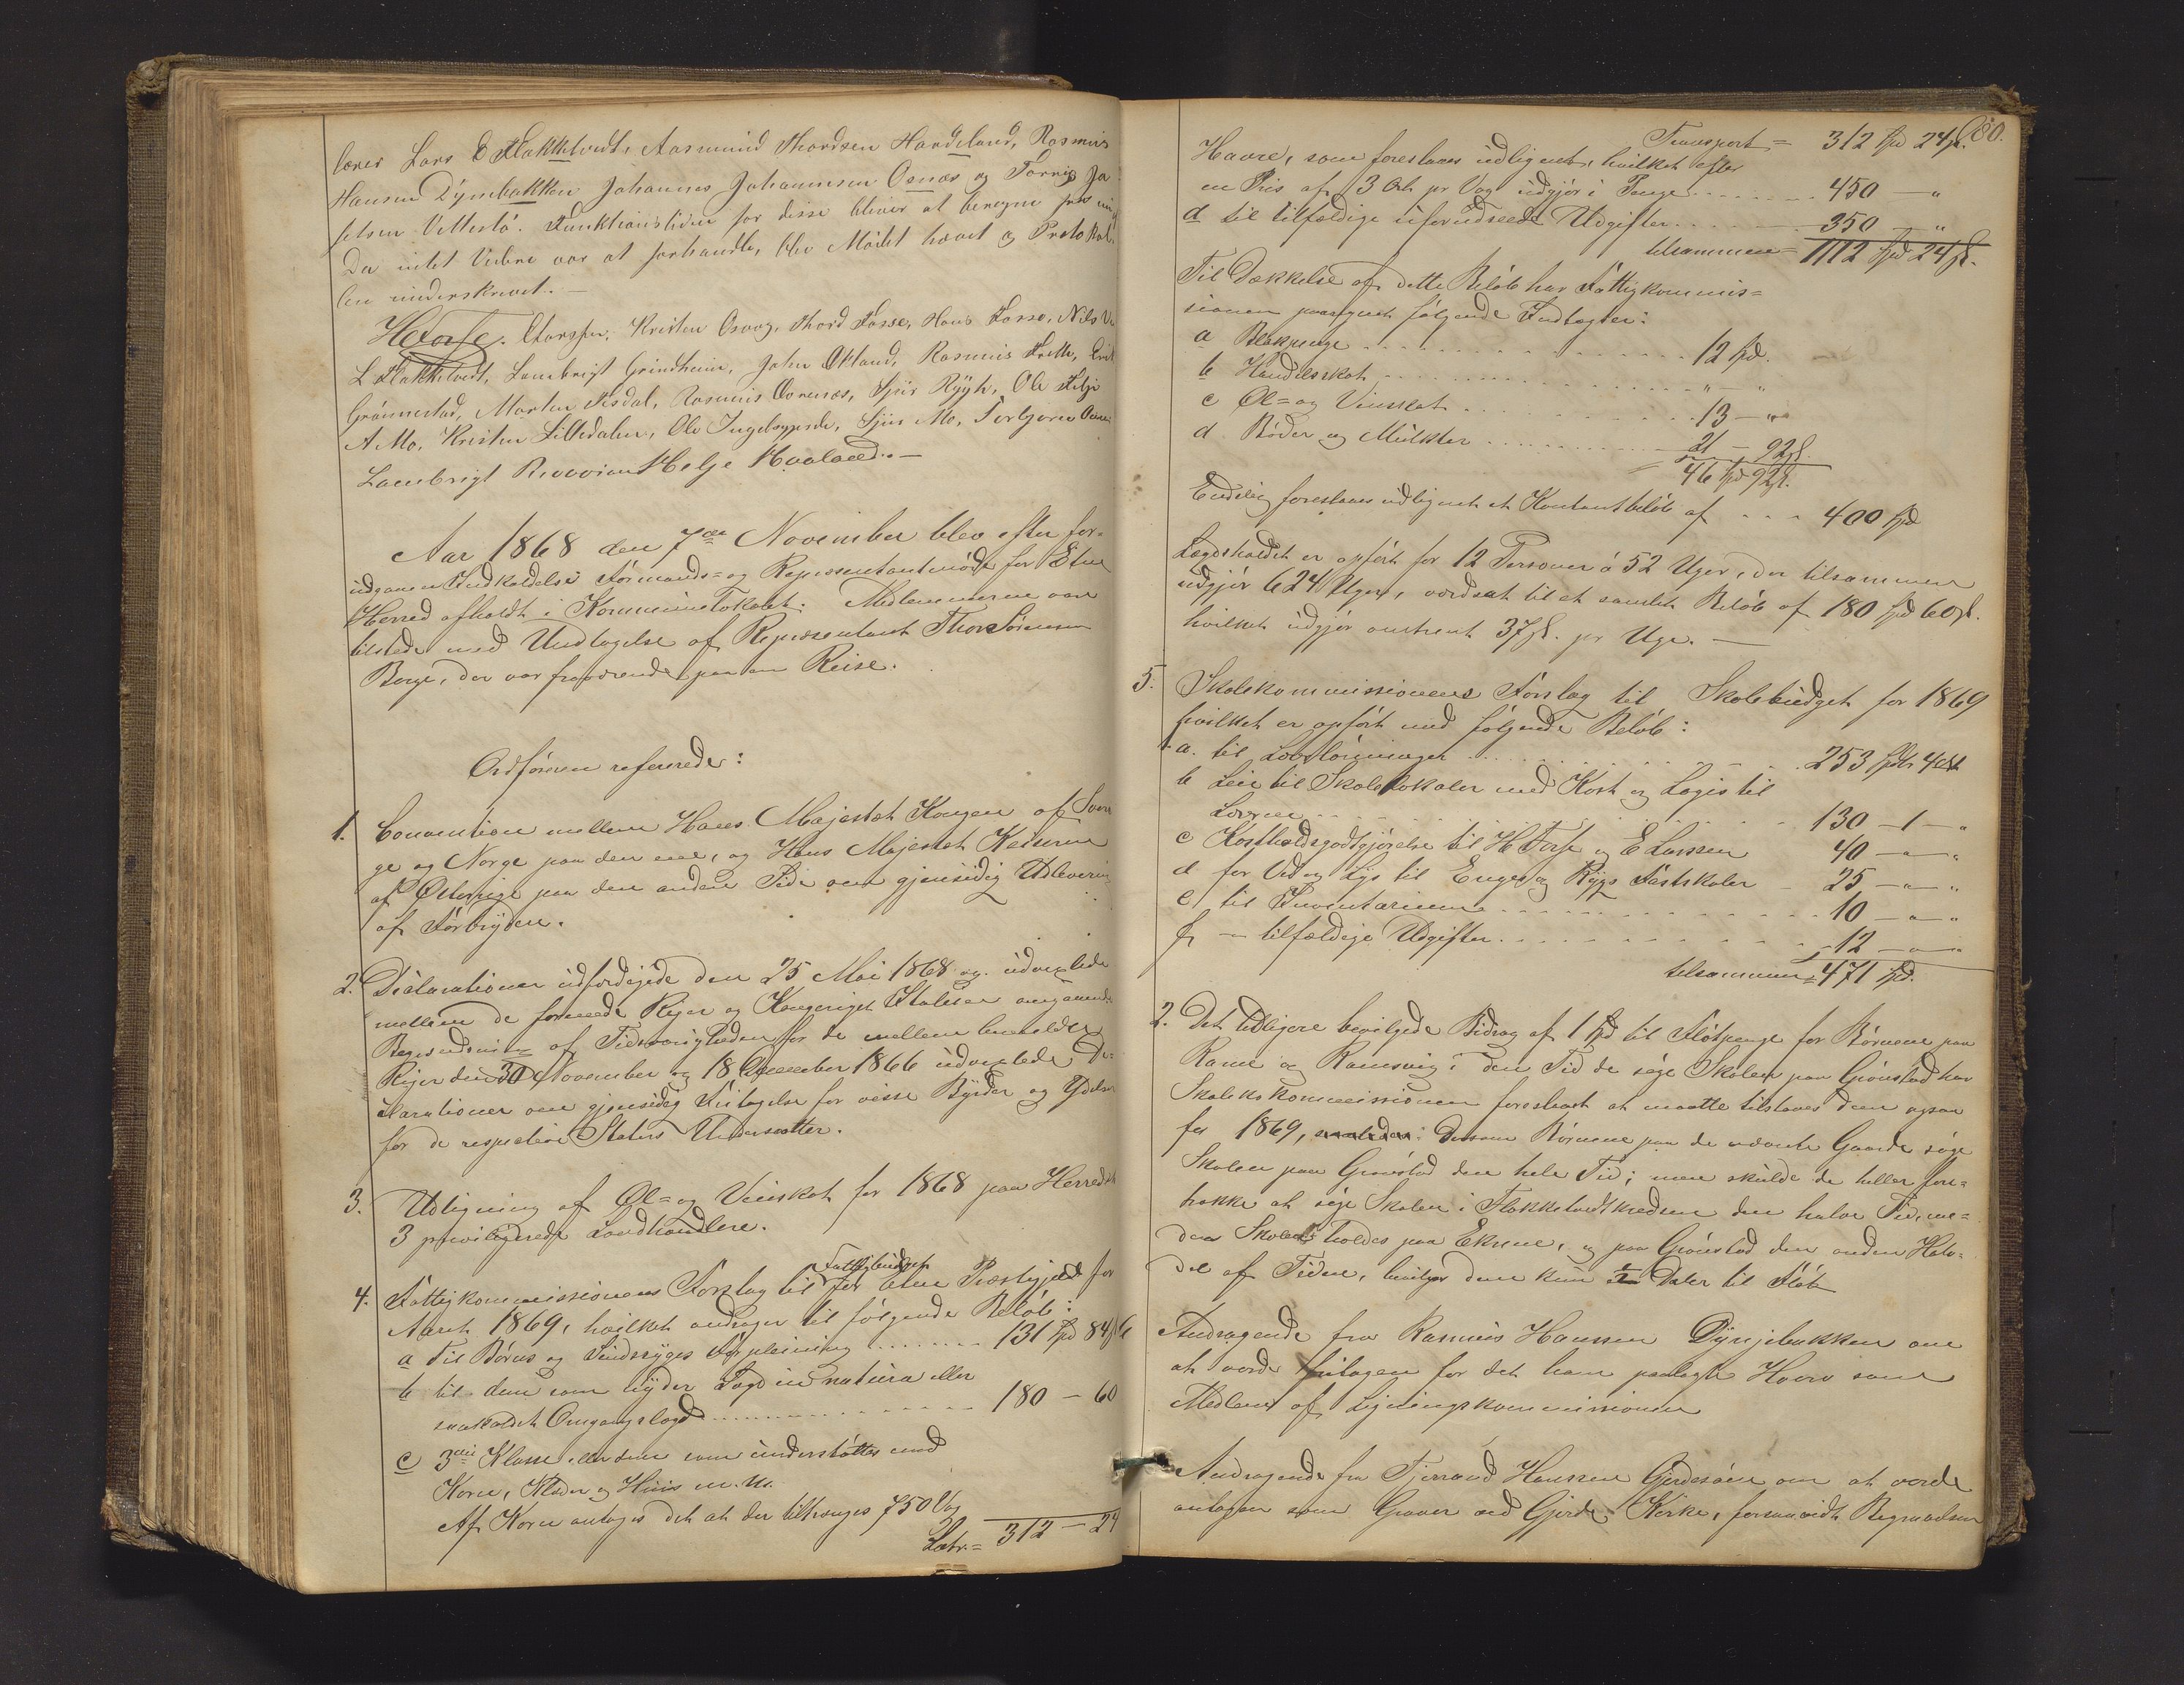 lærer Lars E Flakketvedt, Aasmund Thordsen Handeland, Rasmus
Hansen Dýrnbakken Johannes Johannesen Osnæs og Tørris Ja
Vettestö. Funktionstiden for disse bliver at beregne fra
Da intet Videre var at forhandle, blev Mödet hævet og Protokol-
len underskrevet.—
HTorfse. Kristen Osvog, Thord Fosse, Hans Fosse, Nils
L Flakketvedt, Lambregt Grindheim, John Ökland, Rasmus Frette,
Grönnestad, Morten Aisdal, Rasmus Sjur Rygh, Ole Silje
A Mo, Kristen Litledalen, Ole Sjur Mo, Torbjørn
Lambrigt Helje Haaland.—
Aar 1868 den 7de November blev efter for-
udgaaen Indkaldelse Formands- og Repræsentantmöde for Etne
Herred afholdt i Kommunelokalet. Medlemmerne vare
tilstede med Undtagelse af Repræsentant Thore Sörensen
Berge, der var fraværende paa en Reise.
Ordföreren refererede:
1. Convention mellem Hans Majestæt Kongen af Sveri
ge og Norge paa den ene, og Hans Majestæt Keiseren
af Österrige paa den anden Side om gjensidig Udlevering
af Forbrydere.
2. Déclarationer udfærdigede den 25 Mai 1868 og udvexlede
mellem de forenede Riger og Kongeriget Italien angaaende
Begrændsning af Tidsvarigheden for de mellem bemeldte
Riger den 30 November og 18 December 1866 udvexlede De-
klarationer om gjensidig Fritagelse for visse Byrder og Ydelser
for de respective Staters Undersaatter.
3. Udligning af Öl- og Vinskat for 1868 paa Herredets
3 privilegerede Landhandlere.
Fattigbudget
4. Fattigkommissionens Forslag til for Etne Præstegjeld for
Aaret 1869, hvilket andrager til følgende Belöb:
a Til Börns og Sindssyges Forpleining ........ 131 Spd 84 ß
b til dem som nyder Lægd in natura eller
saakaldet Omgangslægd .............. 180 — 60
c 3die Klasse eller dem som understöttes med
Korn, Klæder og Huus m. m.
Af Korn antages det at der tiltrænges 750 Vog
Latr.= 312 — 24
80.
Transport = 312 Spd 24 ß.
Havre, som foreslaaes udlignet, hvilket efter
en Pris af 3 Ort pr Vog udgjör i Penge ........ 450 — "
d til tilfældige uforudseede Udgifter ........ 350 — "
tilsammen= 1112 Spd 24 ß.
Til Dækkelse af dette Belöb har Fattigkommis-
sionen paaregnet følgende Indtægter:
a Blækpenge ................ 12 Spd.
b Handelsskat ................ " — "
c Öl- og Vinskat ............ 13 — "
d. Böder og Mulkter ............ 21 — 92 ß.
46 Spd 92 ß.
Endelig foreslaaes udlignet et Kontantbelöb af ... 400 Spd
Lægdsholdet er opfört for 12 Personer á 52 Uger, der tilsammen
udgjör 624 Uger, værdsat til et samlet Belöb af 180 Spd 60 ß.
hvilket udgjör omtrent 37 ß. pr Uge.—
5. Skolekommissionens Forslag til Skolebudget for 1869
hvilket er opfört med følgende Belöb:
a. til Lærerlönninger ............ 253 Spdr 4 ort
b Leie til Skolelokaler med Kost og Logis til
Lærerne ................ 130 — 1 — "
c Kostholdsgodtgjörelse til H Torfse og E Larsen 40 — " — "
d for Ved og Lys til Enge og Rygs Fastskoler — 25 — " — "
e til Inventarium ............ 10 — " — "
f — tilfældige Udgifter ............ 12 — " — "
tilsammen= 471 Spd.
2. Det tidligere bevilgede Bidrag af 1 Spd til Flötpenge for Börnene paa
Rame og Ramsvig i den Tid de söge Skolen paa Grönstad har
Skolekskommissionen foreslaaet at maatte tilstaaes dem ogsaa
for 1869, saaledes: Dersom Börnene paa de nævnte Gaarde söge
Skolen paa Grönstad den hele Tid; men skulde de heller fore-
trække at söge Skolen i Flakketvedtkredsen den halve Tid, me-
den Skolen holdes paa Ekrene, og paa Grönstad den anden Halv-
del af Tiden, bevilges dem kun ½ Daler til Flöt
Andragende fra Rasmus Hanssen Dyrjebakken om
at vorde fritagen for det ham paalagte Hverv som
Medlem af Ligningskommissionen
Andragende fra Tjerand Hanssen Gjerdesöen om at vorde
antagen som Graver ved Gjerde Kirke, forsaavidt Begravelsen